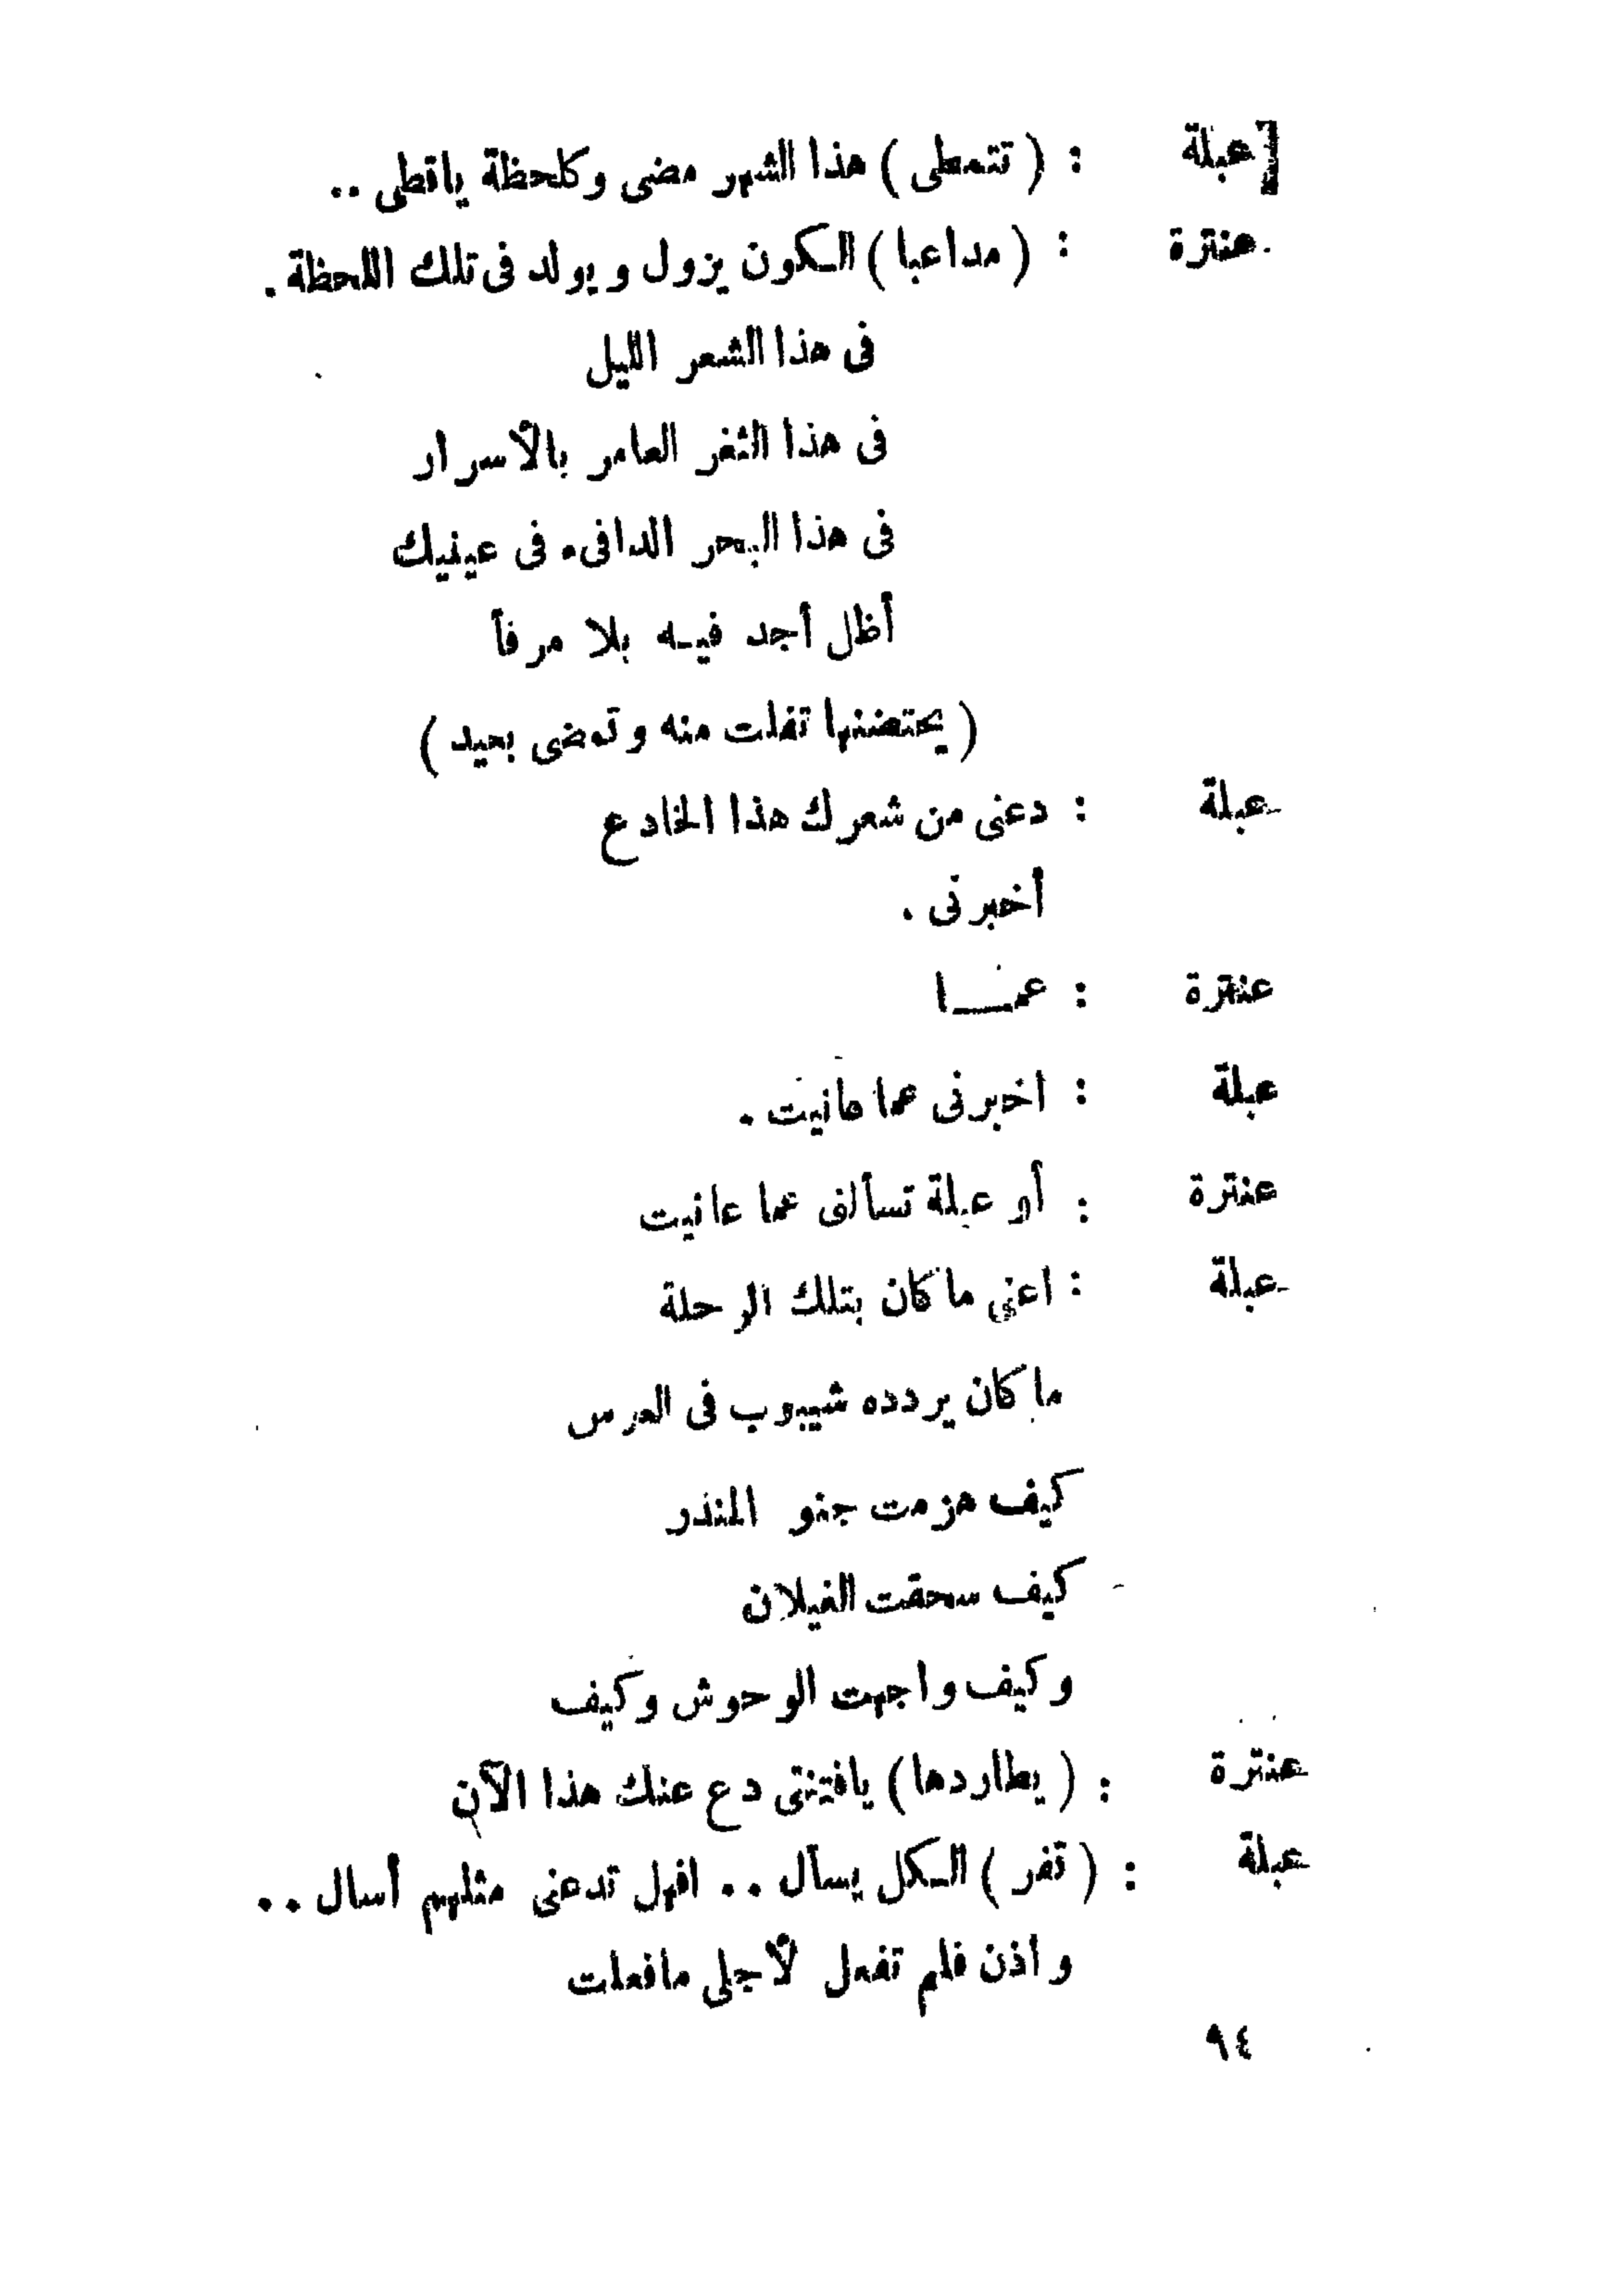 عبلة : ( تتمطى ) هذا الشهر مضى وكلحظة ياقطى ..
عنترة : ( مداعبا ) الكون يزول ويولد فى تلك اللحظة .
فى هذا الشعر الليل
فى هذا الثغر العامر بالأسرار
فى هذا البحر الدافىء فى عينيك
أظل أجد فيه بلا مرفأ
( يحتضنها تفلت منه وتمضى بعيد )
عبلة : دعنى من شعرك هذا الخادع
أخبرنى .
عنترة : عما
عبلة : اخبرنى عما عانيت .
عنترة : أو عبلة تسألنى عما عانيت
عبلة : اعنى ما كان بتلك الرحلة
ما كان يردده شيبوب فى العرس
كيف هزمت جنو المنذر
كيف سحقت الغيلان
وكيف واجهت الوحوش وكيف
عنترة : ( يطاردها ) يافتنتى دع عنك هذا الآن
عبلة : ( تفر ) الكل يسأل .. افهل تدعنى مثلهم أسال ..
وأذن فلم تفعل لأجلى مافعلت
٩٤